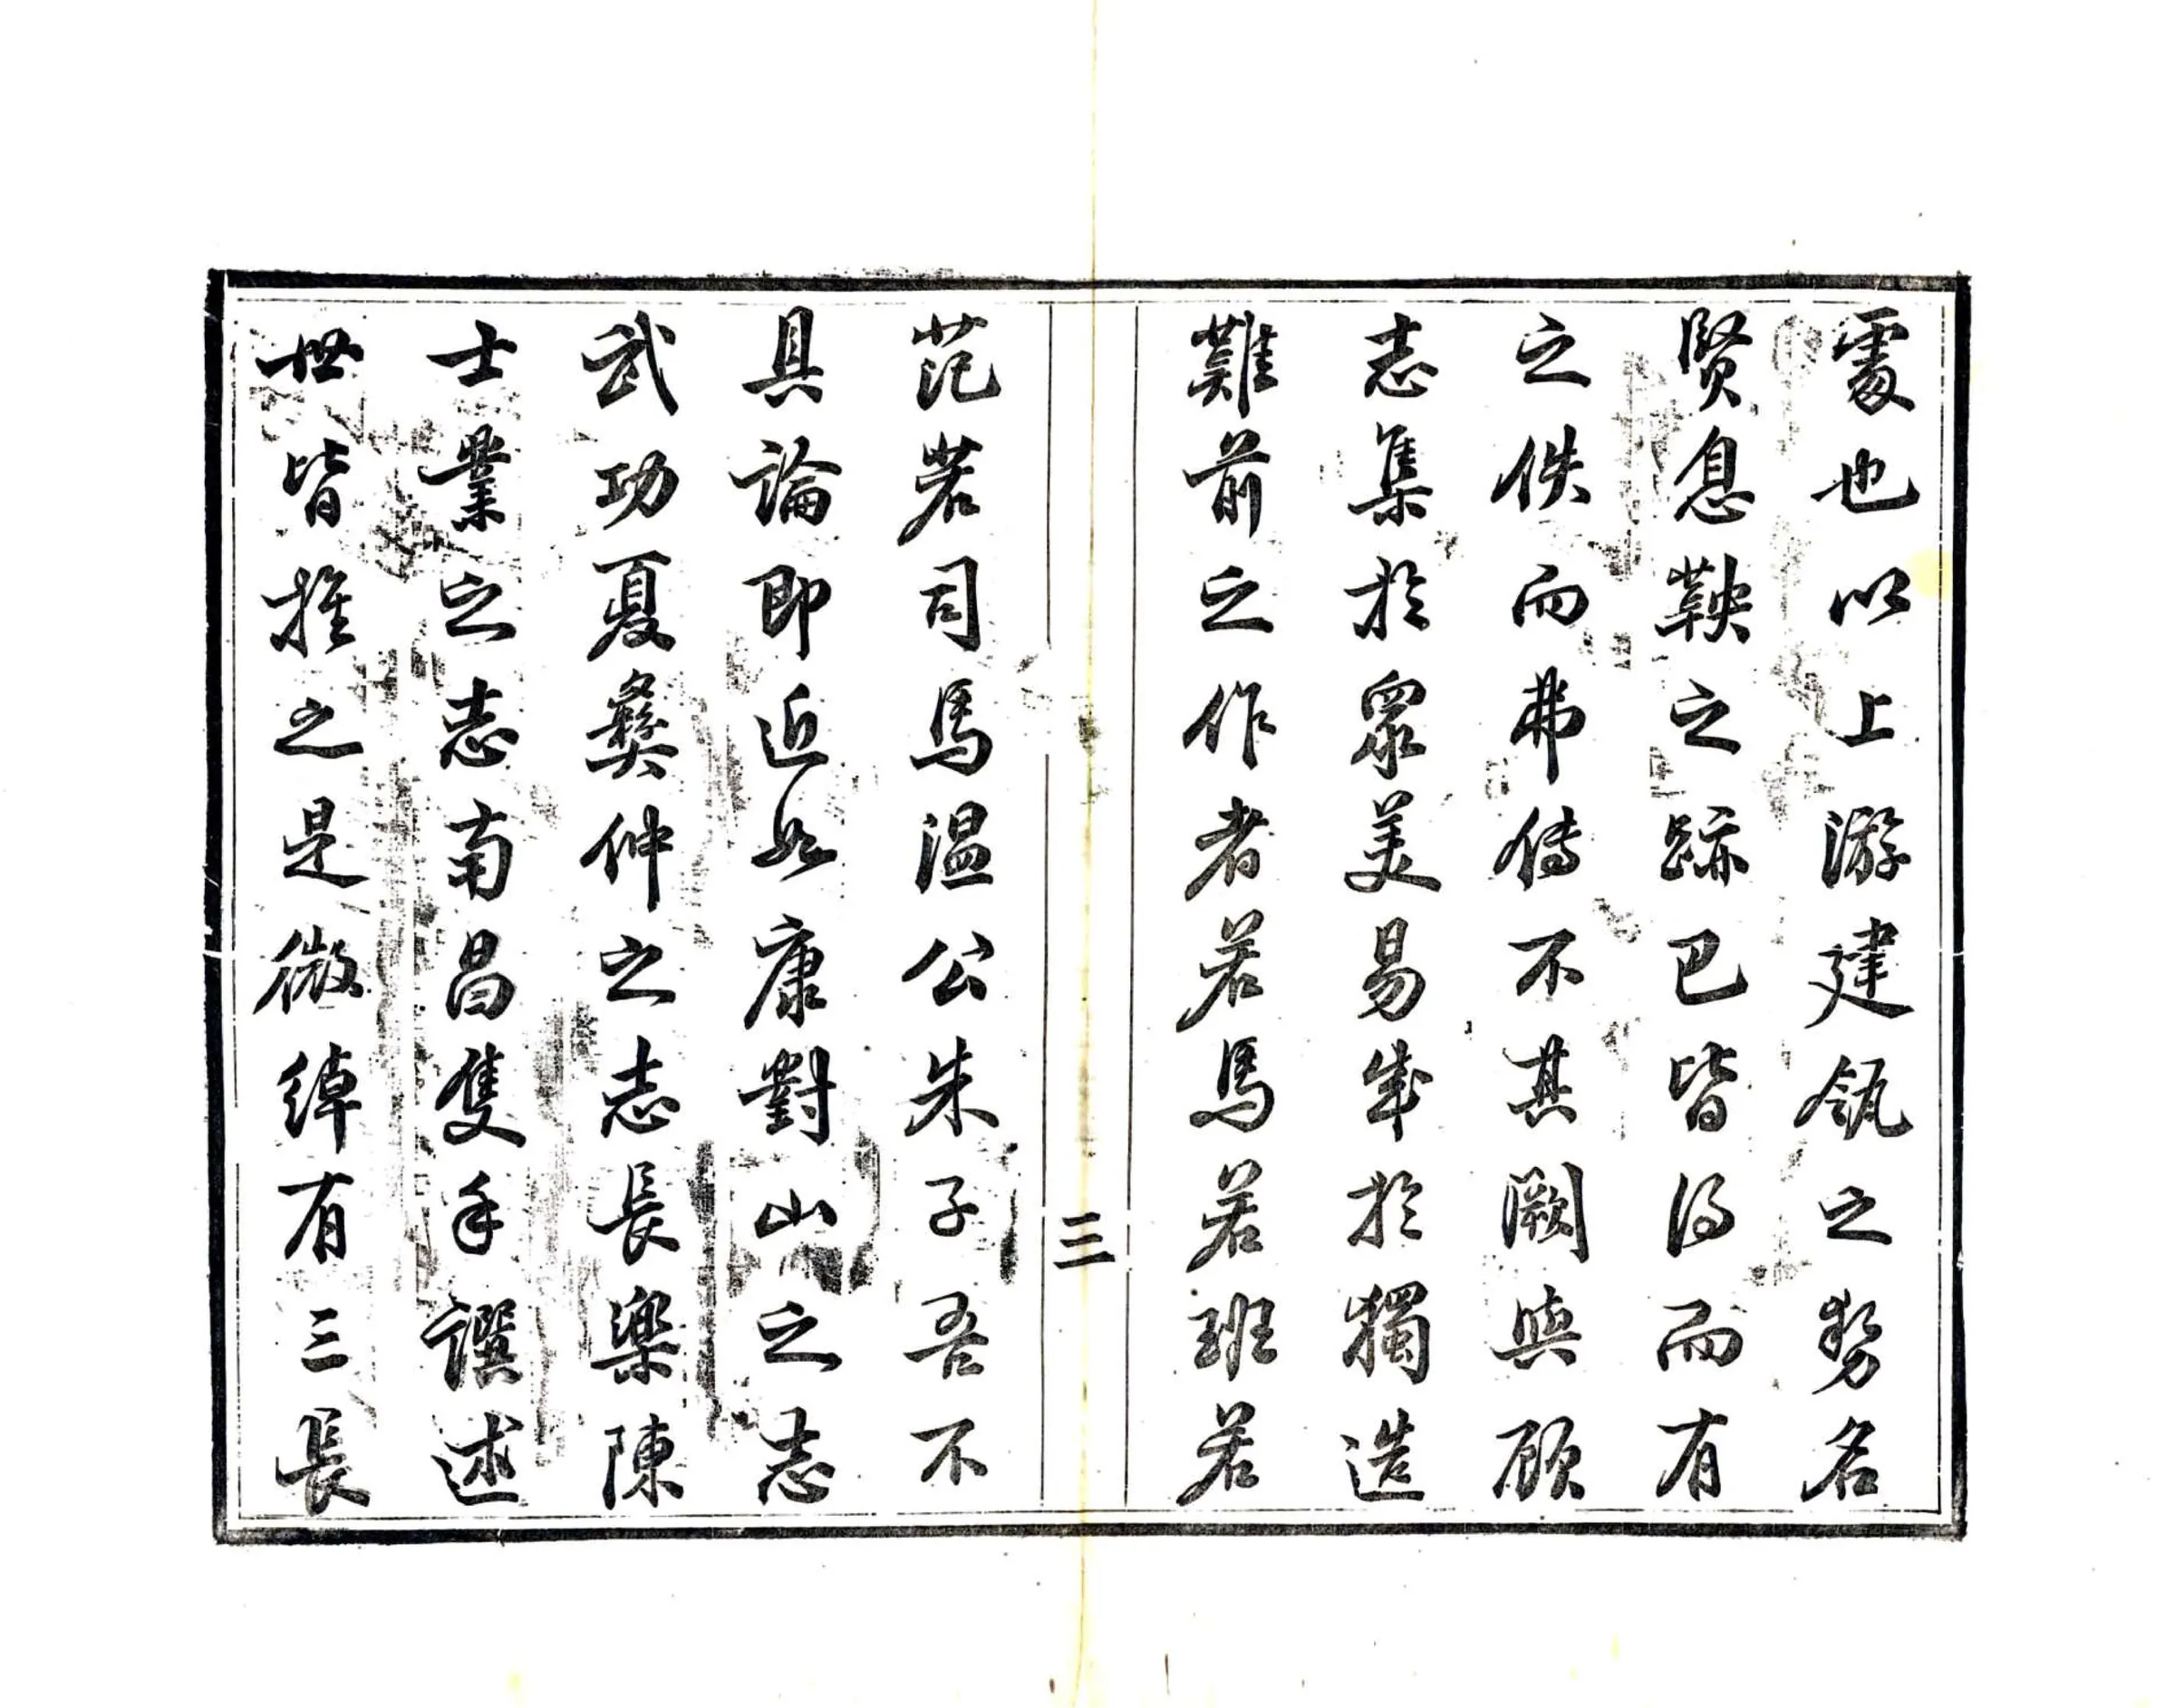 處也以上游建瓴之勢名
賢息鞅之跡已皆得而有
之佚而弗傳不其闕與顧
志集於眾美易成於獨造
難前之作者若馬若班若
三
范若司馬溫公朱子吾不
具論即近如康對山之志
武功夏彝仲之志長樂陳
士業之志南昌隻手譔述
世皆推之是微綽有三長